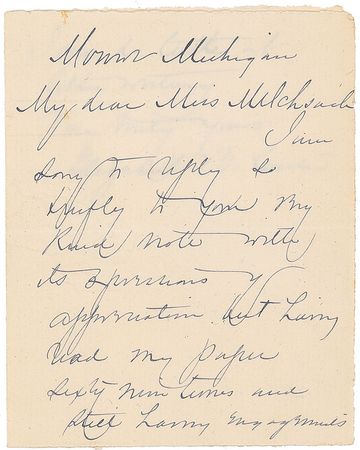 Monroe Michigan
My dear Miss
I am
sorry to reply so
briefly to your very
kind note with
its expressions of
appreciation. but having
read my paper
sixty nine times and
still having engagements